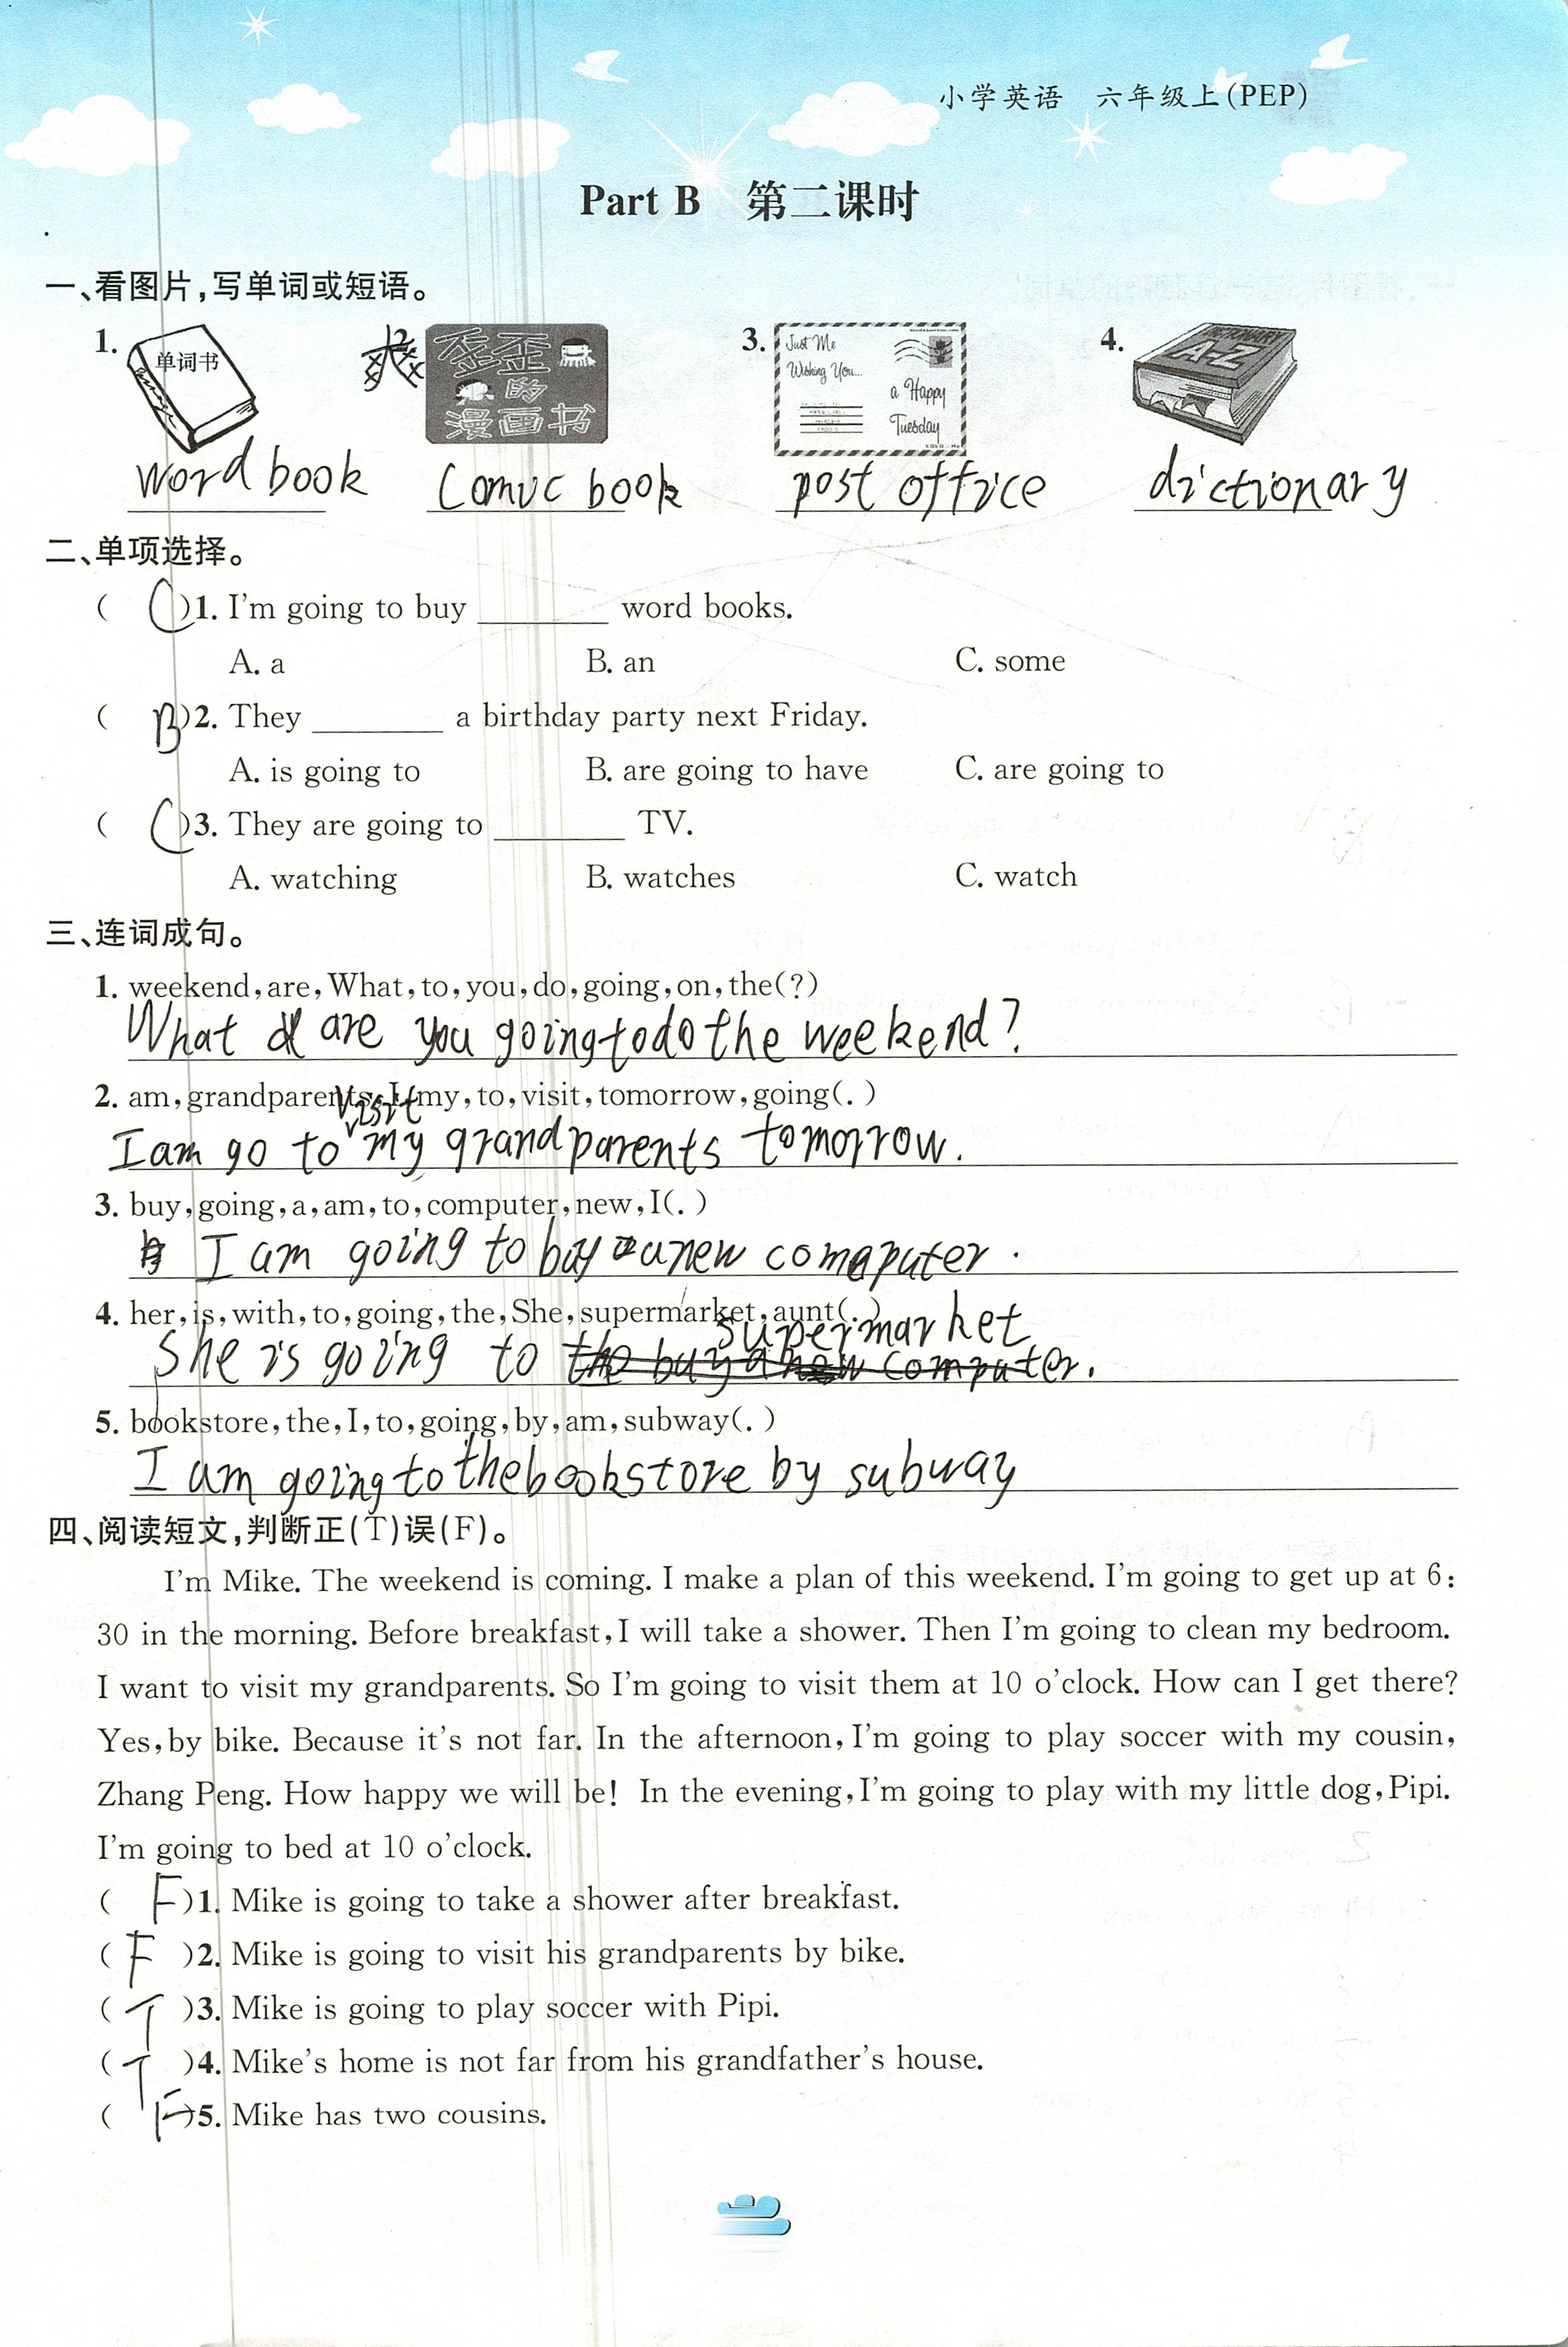 小学英语 六年级上(PEP)
Part B 第二课时
一、看图片,写单词或短语。
1. 单词书 2. 歪歪的漫画书 3. Just Me Wishing You... a Happy Tuesday 4. DICTIONARY A-Z
word book comic book post office dictionary
二、单项选择。
( C )1. I'm going to buy ________ word books.
A. a B. an C. some
( B )2. They ________ a birthday party next Friday.
A. is going to B. are going to have C. are going to
( C )3. They are going to ________ TV.
A. watching B. watches C. watch
三、连词成句。
1. weekend,are,What,to,you,do,going,on,the(?)
What are you going to do the weekend?
2. am,grandparents,I,my,to,visit,tomorrow,going(.)
I am go to visit my grandparents tomorrow.
3. buy,going,a,am,to,computer,new,I(.)
I am going to buy a new computer.
4. her,is,with,to,going,the,She,supermarket,aunt(.)
supermarket
She is going to the buy a new computer.
5. bookstore,the,I,to,going,by,am,subway(.)
I am going to the bookstore by subway
四、阅读短文,判断正(T)误(F)。
I'm Mike. The weekend is coming. I make a plan of this weekend. I'm going to get up at 6:
30 in the morning. Before breakfast,I will take a shower. Then I'm going to clean my bedroom.
I want to visit my grandparents. So I'm going to visit them at 10 o'clock. How can I get there?
Yes,by bike. Because it's not far. In the afternoon,I'm going to play soccer with my cousin,
Zhang Peng. How happy we will be! In the evening,I'm going to play with my little dog,Pipi.
I'm going to bed at 10 o'clock.
( F )1. Mike is going to take a shower after breakfast.
( F )2. Mike is going to visit his grandparents by bike.
( T )3. Mike is going to play soccer with Pipi.
( T )4. Mike's home is not far from his grandfather's house.
( F )5. Mike has two cousins.